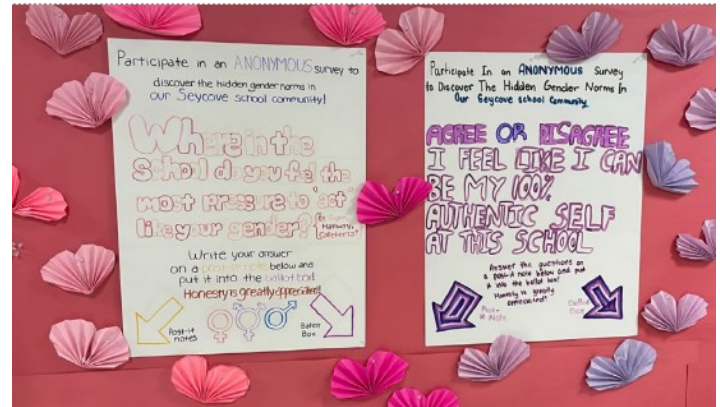 Participate in an ANONYMOUS survey to
discover the hidden gender norms in
our Seycove school community!
Where in the
School do you fel the
most pressure to 'act'
like your gender?
Hallway,
Write your answer
on a post-it note below and
put it into the ballot box!
Honesty is greatly appreciated!
Post-it
notes
Ballot
Box
Participate In an ANONYMOUS Survey
to Discover The Hidden Gender Norms In
Our Seycove school Community
AGREE OR DISAGREE
I FEEL LIKE I CAN
BE MY 100%
AUTHENTIC SELF
AT THIS SCHOOL
Answer the questions on
a post-it note below and put
it into the ballot box!
Honesty is greatly
appreciated!
Post-
it Note
Ballot
Box